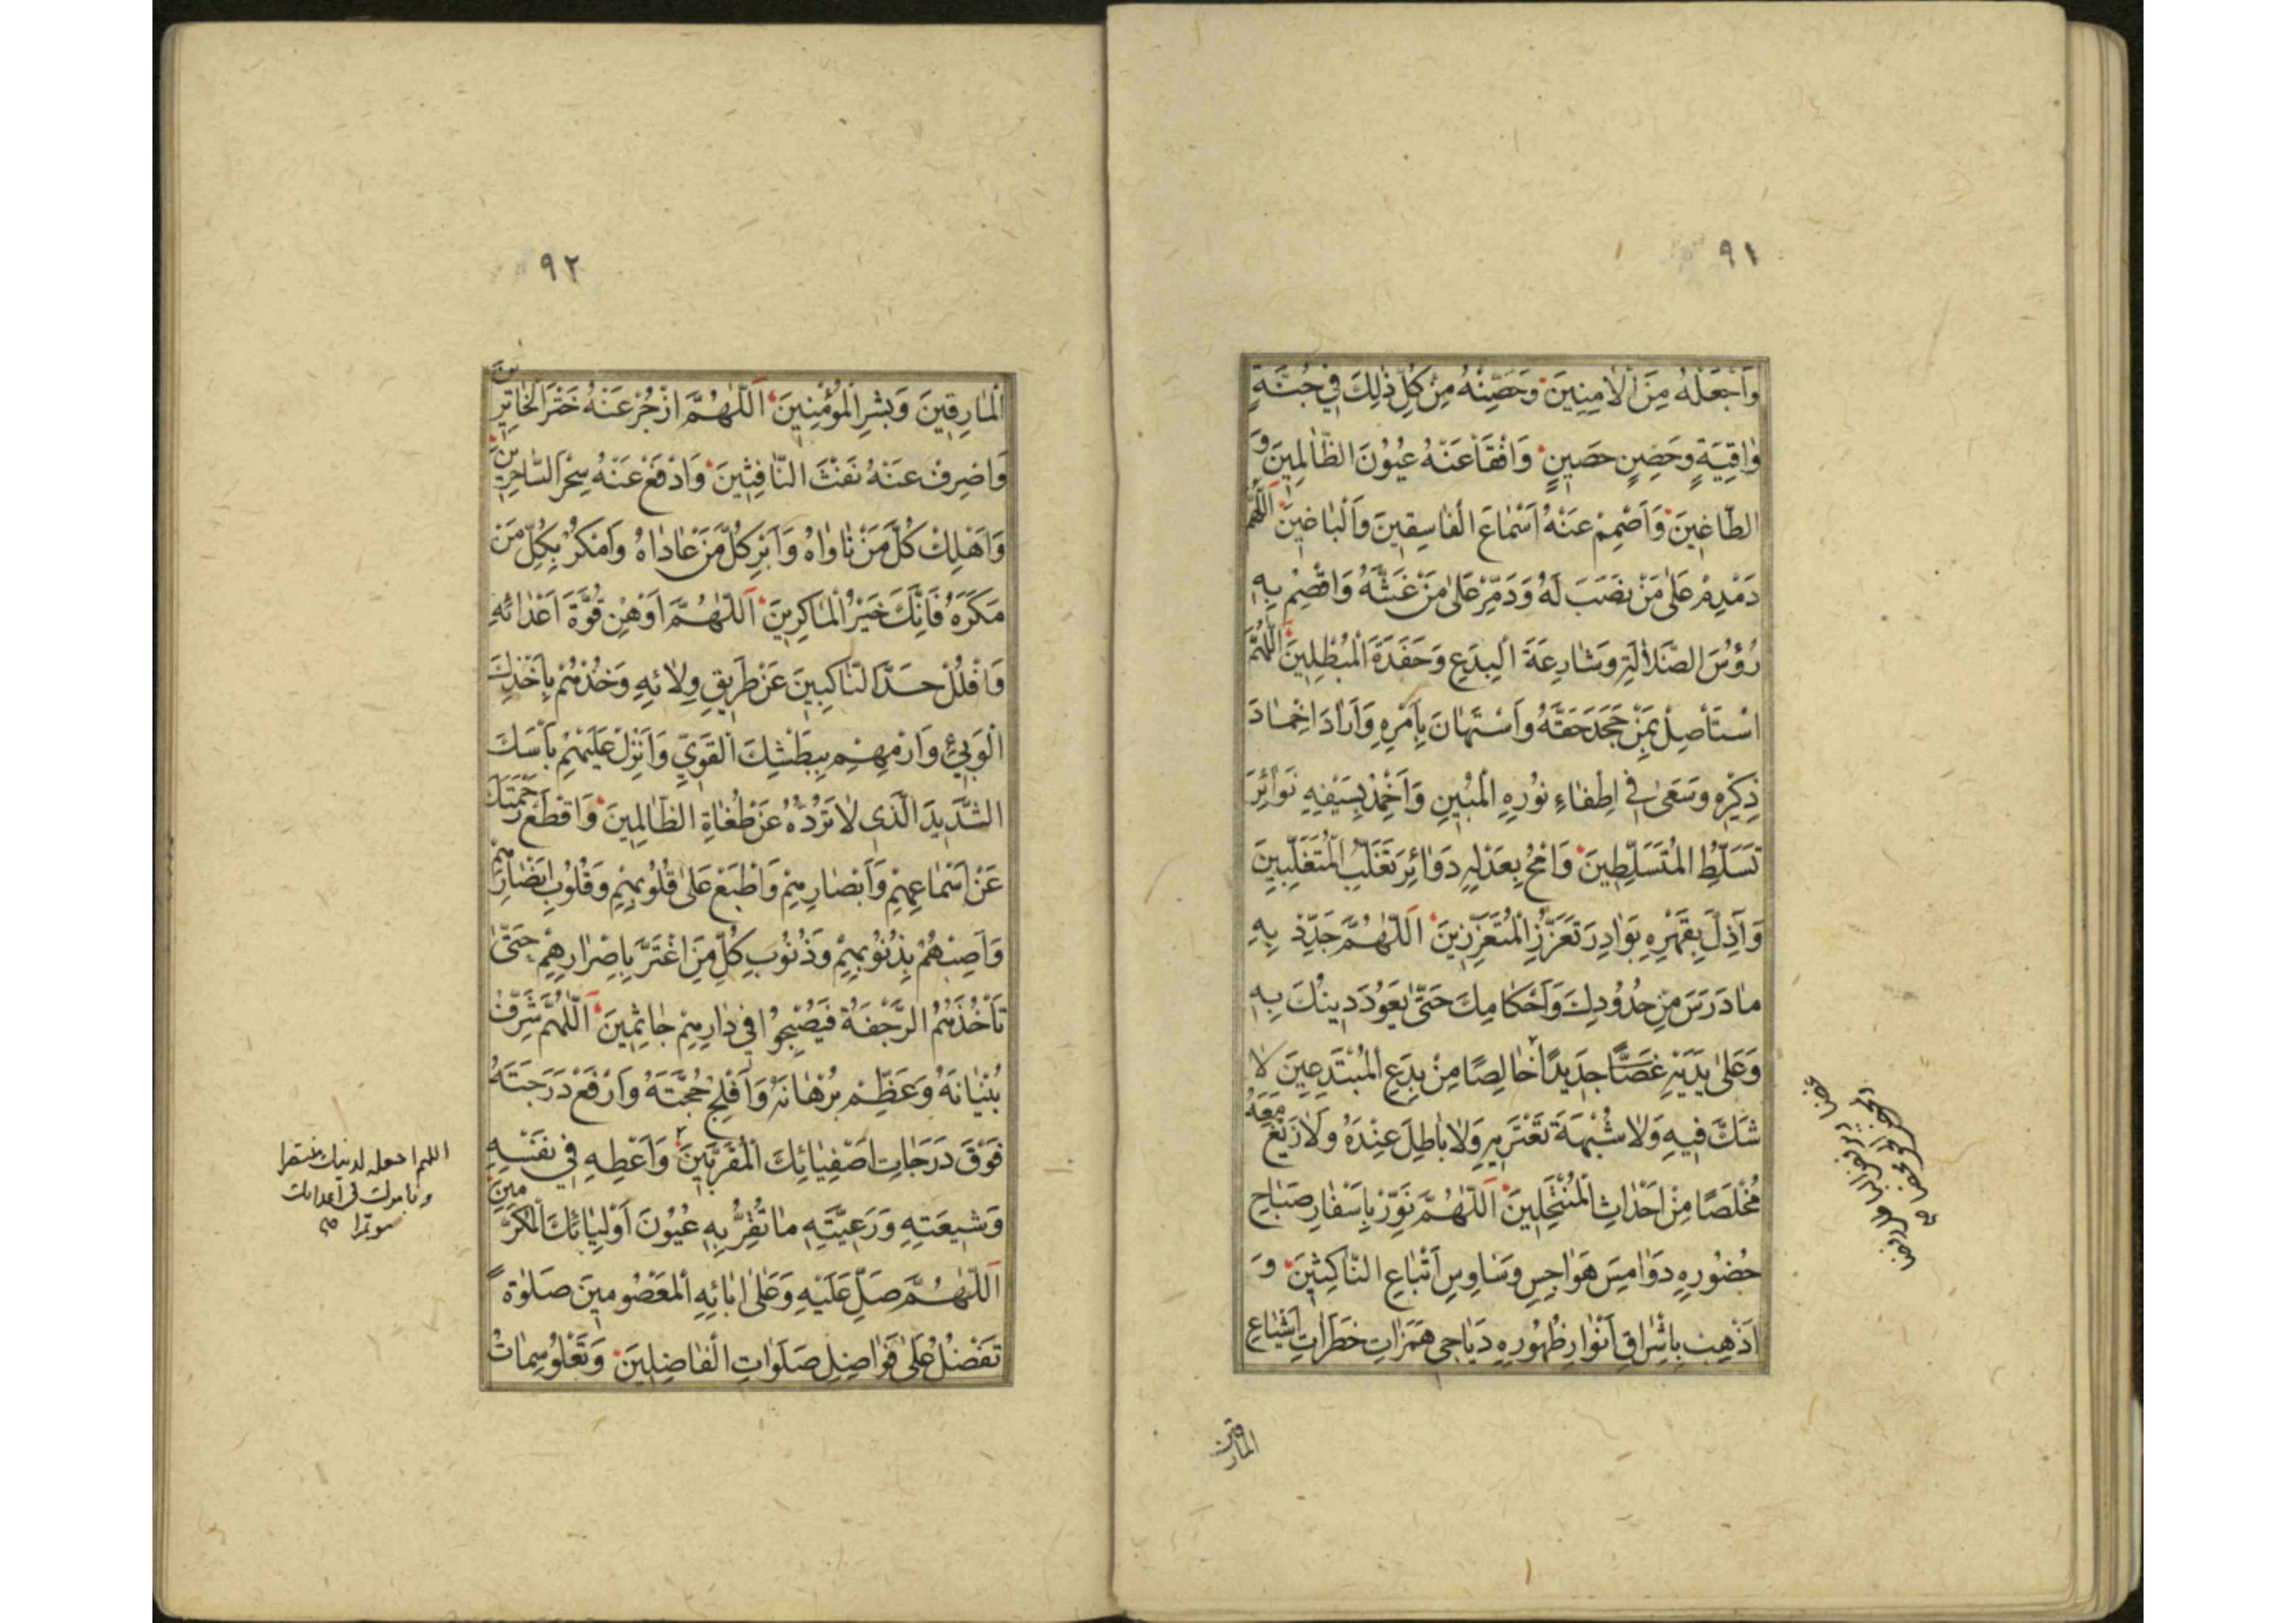 ٩١
وَاَجْعَلْهُ مِنَ ألْاٰمِنِينَ وَحَصِّنْهُ مِنْ كُلِّ ذٰلِكَ فِي جُنَّةٍ
وٰاقِيَةٍ وَحَصْنٍ حَصَينٍ وَافْقَأْ عَنْهُ عُيُونَ الظّٰالِمِينَ وَ
الطّاغِينَ وَاَصْمِمْ عَنْهُ اَسْمٰاعَ الْفٰاسِقِينَ وَاَلْبٰاغِينَ اَللّٰهُمَّ
دَمْدِمْ عَلٰى مَنْ نَصَبَ لَهُ وَدَمِّرْ عَلٰى مَنْ غَشَّهُ وَاقْصِمْ بِهِ
رُؤُسَ الضَّلاٰلَةِ وَشٰارِعَةَ الْبِدَعِ وَحَفَدَةَ الْمُبْطِلِينَ اَللّٰهُمَّ
اسْتَأْصِلْ بِمَنْ جَحَدَ حَقَّهُ وَاَسْتَهٰانَ بِاَمْرِهِ وَاَرٰادَ اِخْمٰادَ
ذِكْرِهِ وَسَعٰى فِي اِطْفٰاءِ نُورِهِ الْمُبْينِ وَاَخْمِدْ بِسَيْفِهِ نَوٰائِرَ
تَسَلُّطِ الْمُتَسَلِّطِينَ وَامْحُ بِعَدْلِهِ دَوٰائِرَ تَغَلُّبِ الْمُتَغَلِّبِينَ
وَاَذِلَّ بِقَهْرِهِ بَوٰادِرَ تَعَزُّزِ الْمُتَعَزِّزِينَ اَللّٰهُمَّ جَدِّدْ بِهِ
مٰا دَرَسَ مِنْ حُدُودِكَ وَاَحْكٰامِكَ حَتّٰى يَعُودَ دِينُكَ بِهِ
وَعَلٰى يَدَيْهِ غَضًّا جَدِيدًا خٰالِصًا مِنْ بِدَعِ اَلْمُبْتَدِعِينَ لاٰ
شَكَّ فِيهِ وَلاٰ شُبْهَةَ تَعْتَرِيهِ وَلاٰ بٰاطِلَ عِنْدَهُ وَلاٰ زَيْغَ مَعَهُ
مُخْلَصًا مِنْ اَحْدٰاثِ الْمُنْتَحِلِينَ اَللّٰهُمَّ نَوِّرْ بِاَسْفٰارِ صَبٰاحِ
حُضُورِهِ دَوٰامِيسَ هَوٰاجِسِ وَسٰاوِسِ اَتْبٰاعِ النّٰاكِثِينَ وَ
اَذْهِبْ بِاِشْرٰاقِ اَنْوٰارِ ظُهُورِهِ دَيٰاجِىَ هَمَزٰاتِ خَطَرٰاتِ اَشْيٰاعِ
المارقين
٩٢
اَلْمٰارِقِينَ وَبَشِّرِ الْمُؤْمِنِينَ اَللّٰهُمَّ ازْجُرْ عَنْهُ خَتْرَ الْخٰاتِرِينَ
وَاصْرِفْ عَنْهُ نَفْثَ النّٰافِثِينَ وَادْفَعْ عَنْهُ سِحْرَ السّٰاحِرِينَ
وَاَهْلِكْ كُلَّ مَنْ نٰاوٰاهُ وَاَبْرِ كُلَّ مَنْ عٰادٰاهُ وَامْكُرْ بِكُلِّ مَنْ
مَكَرَهُ فَاِنَّكَ خَيْرُ الْمٰاكِرِينَ اَللّٰهُمَّ اَوْهِنْ قُوَّةَ اَعْدٰائِهِ
وَافْلُلْ حَدَّ النّٰاكِبِينَ عَنْ طَرِيقِ وِلاٰئِهِ وَخُذْهُمْ بِاَخْذِكَ
الْوَبِيْءِ وَارْمِهِمْ بِبَطْشِكَ الْقَوِيِّ وَاَنْزِلْ عَلَيْهِمْ بَأْسَكَ
الشَّدِيدَ الَّذِي لاٰ تَرُدُّهُ عَنْ طُغٰاةِ الظّٰالِمِينَ وَاقْطَعْ رَحْمَتَكَ
عَنْ اَسْمٰاعِهِمْ وَاَبْصٰارِهِمْ وَاطْبَعْ عَلٰى قُلُوبِهِمْ وَقُلُوبِ اَنْصٰارِهِمْ
وَاَصِبْهُمْ بِذُنُوبِهِمْ وَذُنُوبِ كُلِّ مَنِ اغْتَرَّ بِاِصْرٰارِهِمْ حَتّٰى
تَأْخُذَهُمُ الرَّجْفَةُ فَيُصْبِحُوا فِي دٰارِهِمْ جٰاثِمِينَ اَللّٰهُمَّ شَرِّفْ
بُنْيٰانَهُ وَعَظِّمْ بُرْهٰانَهُ وَاَفْلِجْ حُجَّتَهُ وَارْفَعْ دَرَجَتَهُ
فَوْقَ دَرَجٰاتِ اَصْفِيٰائِكَ الْمُقَرَّبِينَ وَاَعْطِهِ فِي نَفْسِهِ
وَشِيعَتِهِ وَرَعِيَّتِهِ مٰا تُقِرُّ بِهِ عُيُونَ اَوْلِيٰائِكَ الْمُكَرَّمِينَ
اَللّٰهُمَّ صَلِّ عَلَيْهِ وَعَلٰى اٰبٰائِهِ اَلْمَعْصُومِينَ صَلوٰةً
تَفْضُلُ عَلٰى فَوٰاضِلِ صَلَوٰاتِ الْفٰاضِلِينَ وَتَعْلُو سِمٰاتُ
اللهم اجعله لدينك منتصرا